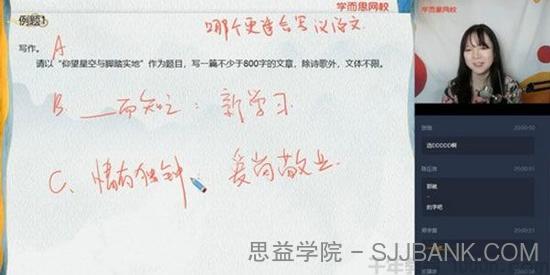 例题1
学而思网校
哪个更适合写议论文
写作。
A
请以“仰望星空与脚踏实地”作为题目，写一篇不少于800字的文章，除诗歌外，文体不限。
B. __而知之：新学习
C. 情有独钟 爱岗敬业
学而思网校
选CCCCCC啊
20:00:50
20:00:51
的字吧
思益学院 - SJJBANK.COM